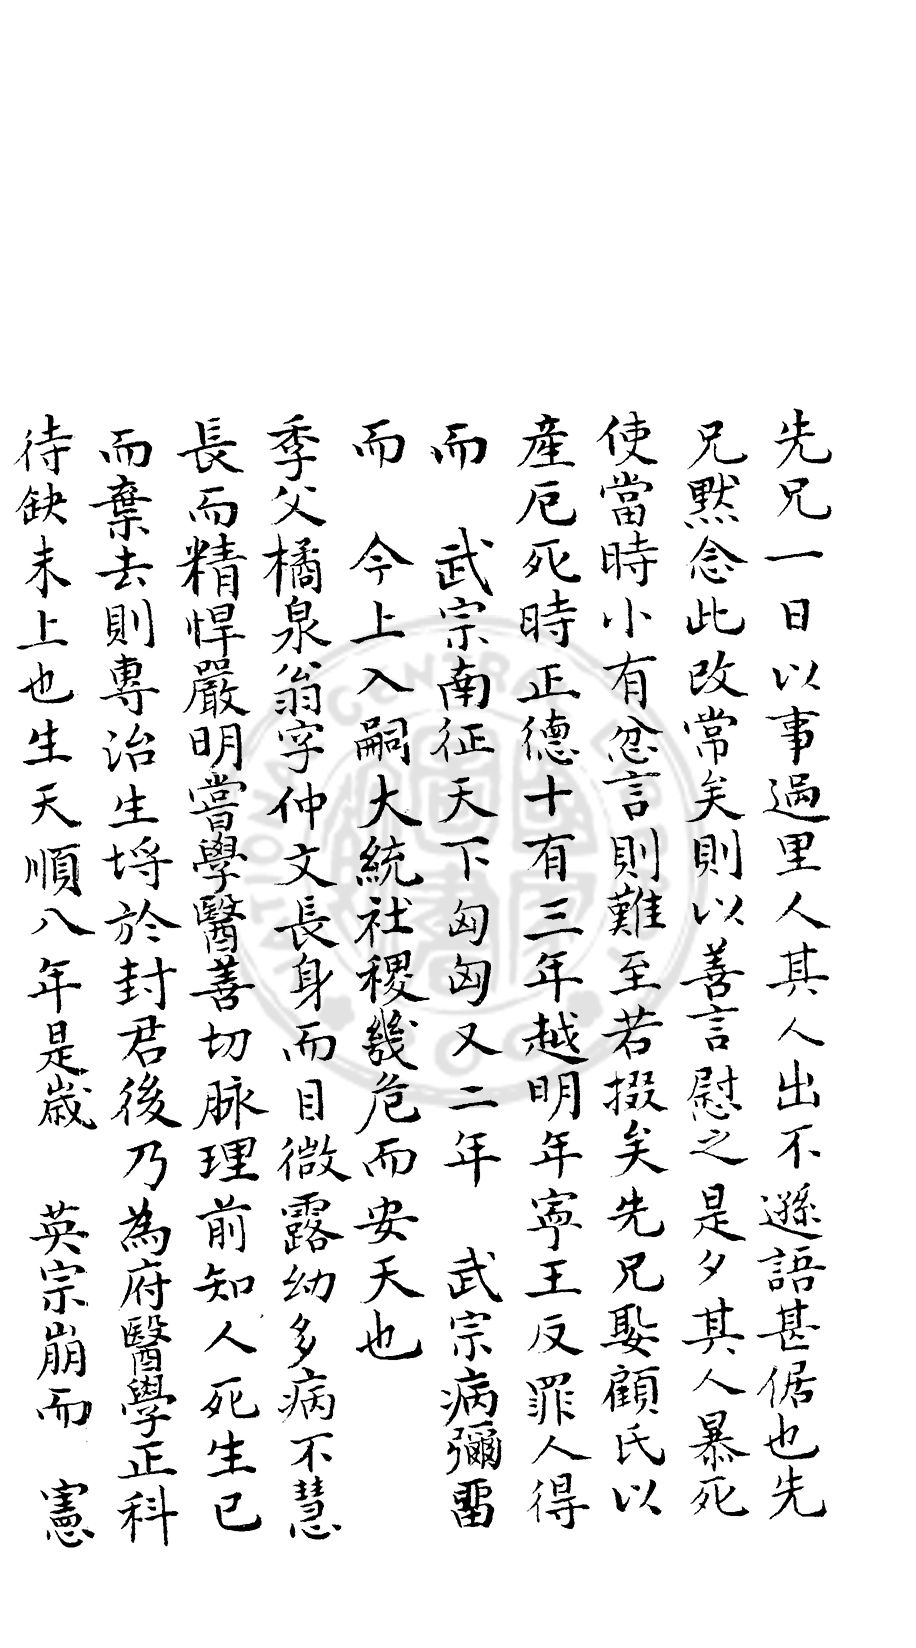 先兄一日以事過里人其人出不遜語甚倨也先
兄默念此改常矣則以善言慰之是夕其人暴死
使當時小有忿言則難至若掇矣先兄娶顧氏以
產厄死時正德十有三年越明年寧王反罪人得
而　武宗南征天下匈匈又二年　武宗病彌留
而　今上入嗣大統社稷幾危而安天也
季父橘泉翁字仲文長身而目微露幼多病不慧
長而精悍嚴明嘗學醫善切脉理前知人死生已
而棄去則專治生埒於封君後乃為府醫學正科
待缺未上也生天順八年是歲　英宗崩而　憲
NATIONAL CENTRAL LIBRARY